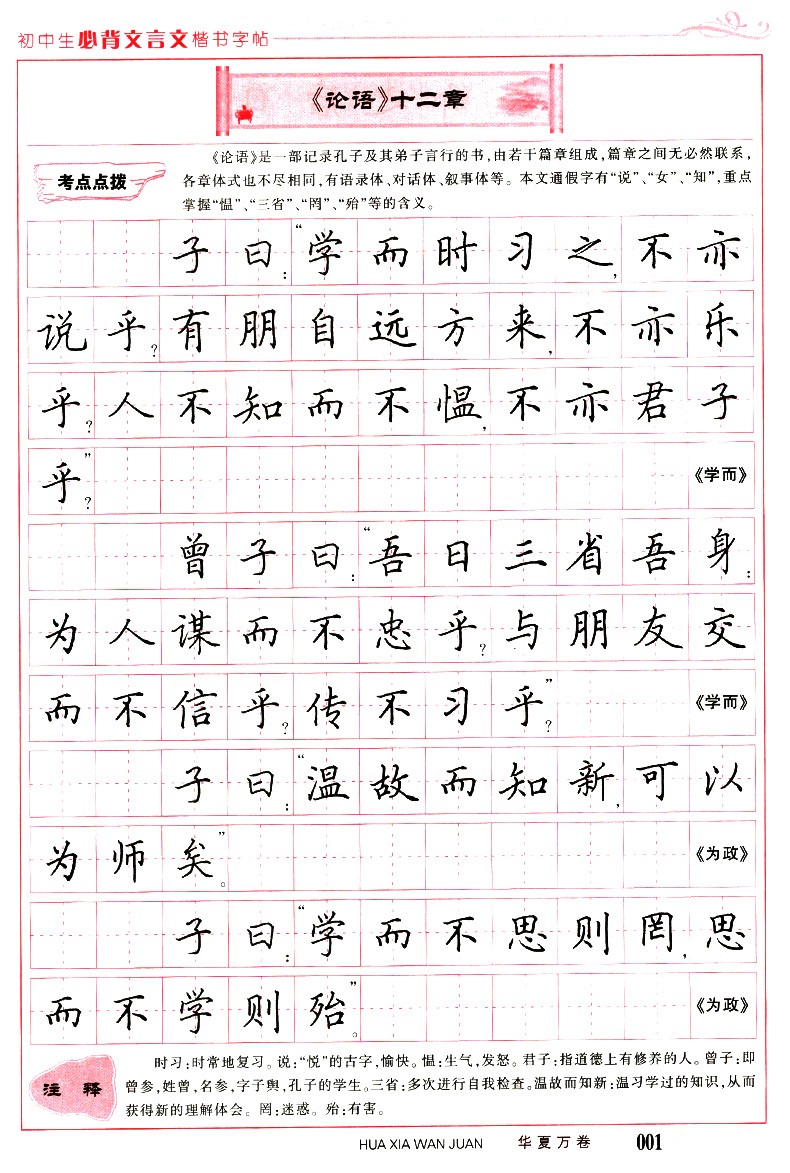 初中生必背文言文楷书字帖
《论语》十二章
考点点拨
《论语》是一部记录孔子及其弟子言行的书，由若干篇章组成，篇章之间无必然联系，
各章体式也不尽相同，有语录体、对话体、叙事体等。本文通假字有“说”、“女”、“知”，重点
掌握“愠”、“三省”、“罔”、“殆”等的含义。
子曰：“学而时习之，不亦
说乎？有朋自远方来，不亦乐
乎？人不知而不愠，不亦君子
乎？”《学而》
曾子曰：“吾日三省吾身：
为人谋而不忠乎？与朋友交
而不信乎？传不习乎？”《学而》
子曰：“温故而知新，可以
为师矣。”《为政》
子曰：“学而不思则罔，思
而不学则殆。”《为政》
注释
时习：时常地复习。说：“悦”的古字，愉快。愠：生气，发怒。君子：指道德上有修养的人。曾子：即
曾参，姓曾，名参，字子舆，孔子的学生。三省：多次进行自我检查。温故而知新：温习学过的知识，从而
获得新的理解体会。罔：迷惑。殆：有害。
HUA XIA WAN JUAN 华夏万卷 001